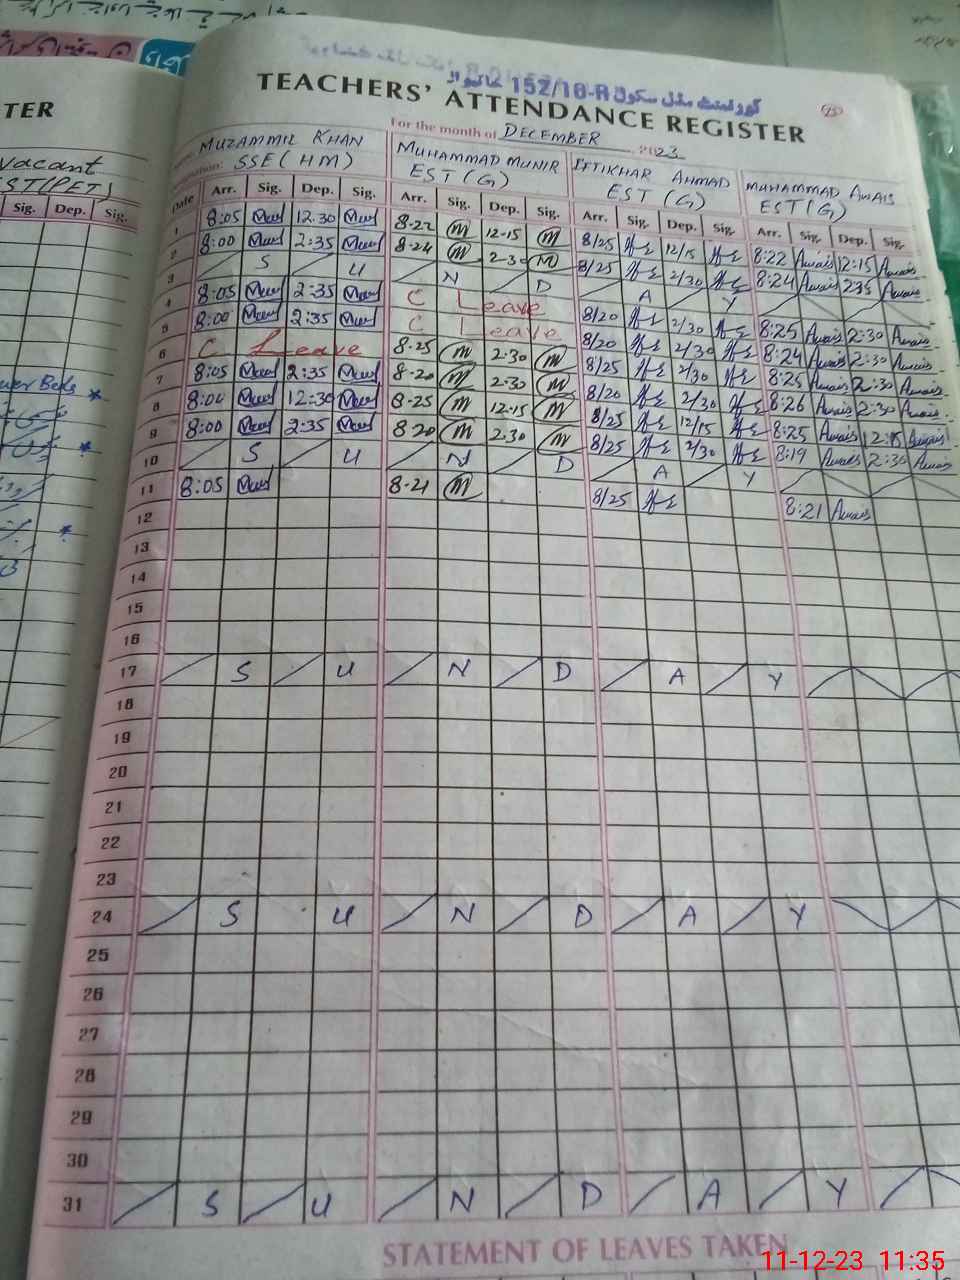 گورنمنٹ مڈل سکول 152/10-R خانیوال
TEACHERS' ATTENDANCE REGISTER
For the month of DECEMBER 2023
TER
vacant
EST(PET)
Sig. Dep. Sig.
MUZAMMIL KHAN MUHAMMAD MUNIR IFTIKHAR AHMAD MUHAMMAD AWAIS
SSE (HM) EST (G) EST (G) EST (G)
Date Arr. Sig. Dep. Sig. Arr. Sig. Dep. Sig. Arr. Sig. Dep. Sig. Arr. Sig. Dep. Sig.
1 8:05 12.30 8-22 M 12-15 M 8/25 12/15 8:22 Awais 12:15 Awais
2 8:00 2:35 8-24 M 2-30 M 8/25 2/30 8:24 Awais 2:35 Awais
3 S U N D A Y
4 8:05 2:35 C Leave 8/20 2/30 8:25 Awais 2:30 Awais
5 8:00 2:35 C Leave 8/20 2/30 8:24 Awais 2:30 Awais
6 C Leave 8-25 M 2-30 M 8/25 2/30 8:25 Awais 2:30 Awais
7 8:05 2:35 8-20 M 2-30 M 8/20 2/30 8:26 Awais 2:30 Awais
8 8:00 12:30 8-25 M 12-15 M 8/25 12/15 8:25 Awais 12:15 Awais
9 8:00 2:35 8-20 M 2-30 M 8/25 2/30 8:19 Awais 2:30 Awais
10 S U N D A Y
11 8:05 8-21 M 8/25 8:21 Awais
12
13
14
15
16
17 S U N D A Y
18
19
20
21
22
23
24 S U N D A Y
25
26
27
28
29
30
31 S U N D A Y
STATEMENT OF LEAVES TAKEN
11-12-23 11:35